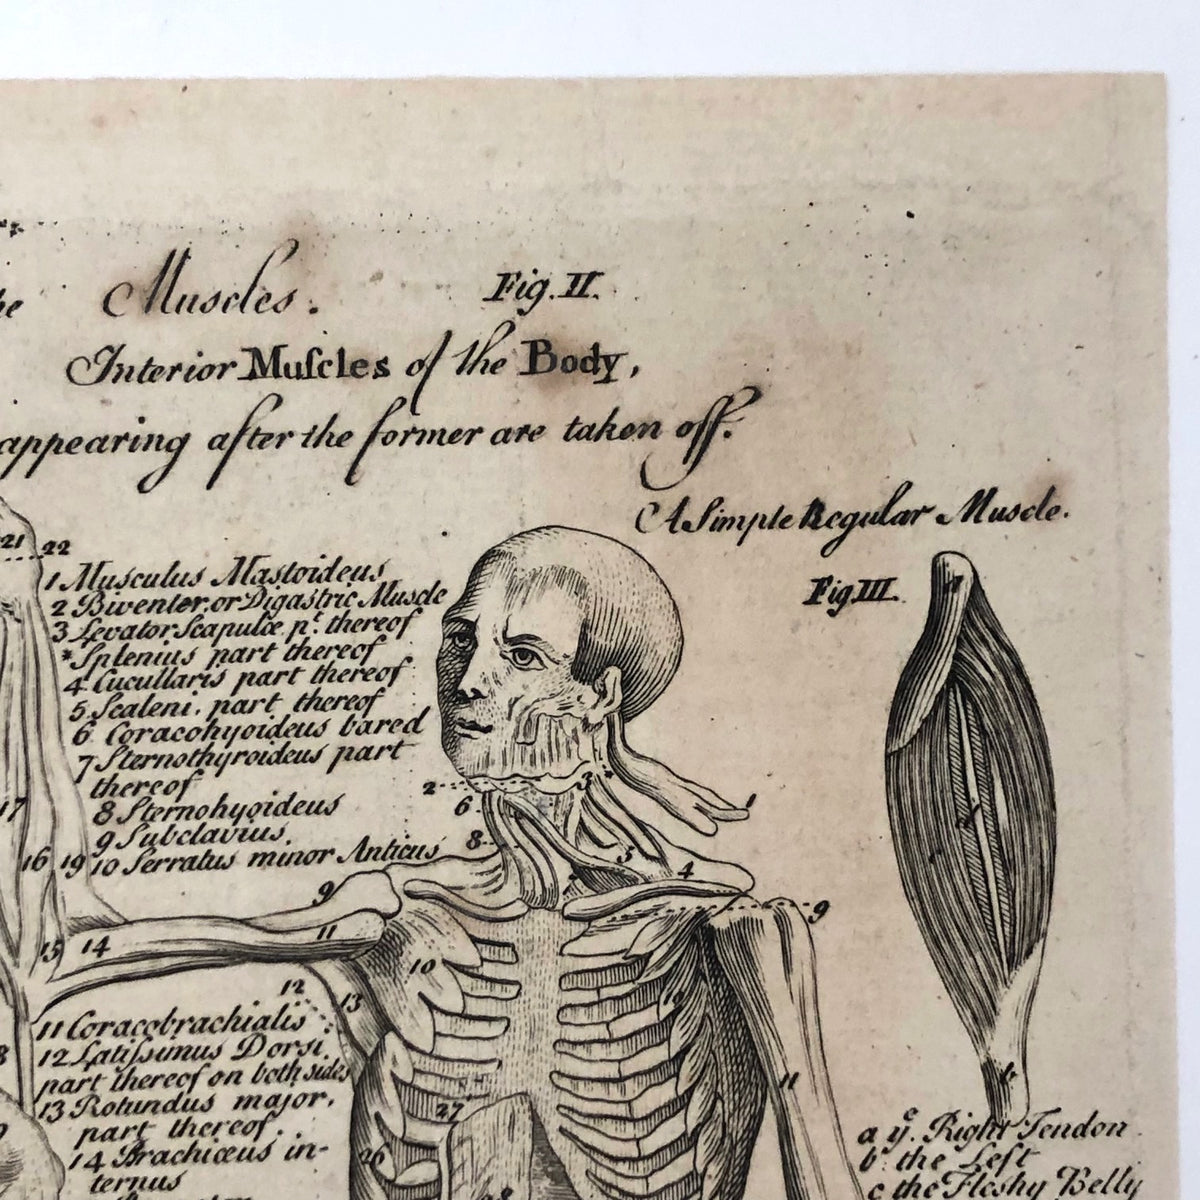 he Muscles. Fig. II.
Interior Muſcles of the Body,
appearing after the former are taken off.
A Simple Regular Muscle.
Fig. III.
21 22
1 Musculus Mastoideus
2 Biventer, or Digastric Muscle
3 Levator Scapulæ pt. thereof
*Splenius part thereof
4 Cucullaris part thereof
5 Scaleni, part thereof
6 Coracohyoideus bared
7 Sternothyroideus part
thereof
8 Sternohyoideus
9 Subclavius.
10 Serratus minor Anticus
2
6
8
3
*
1
5
4
9
9
17
16 19
15 14
11
10
12
13
11
27
26
11 Coracobrachialis
12 Latiſsimus Dorsi,
part thereof on both sides
13 Rotundus major,
part thereof.
14 Brachiæus in-
ternus
a ye. Right Tendon
b the Left
c the Fleshy Belly